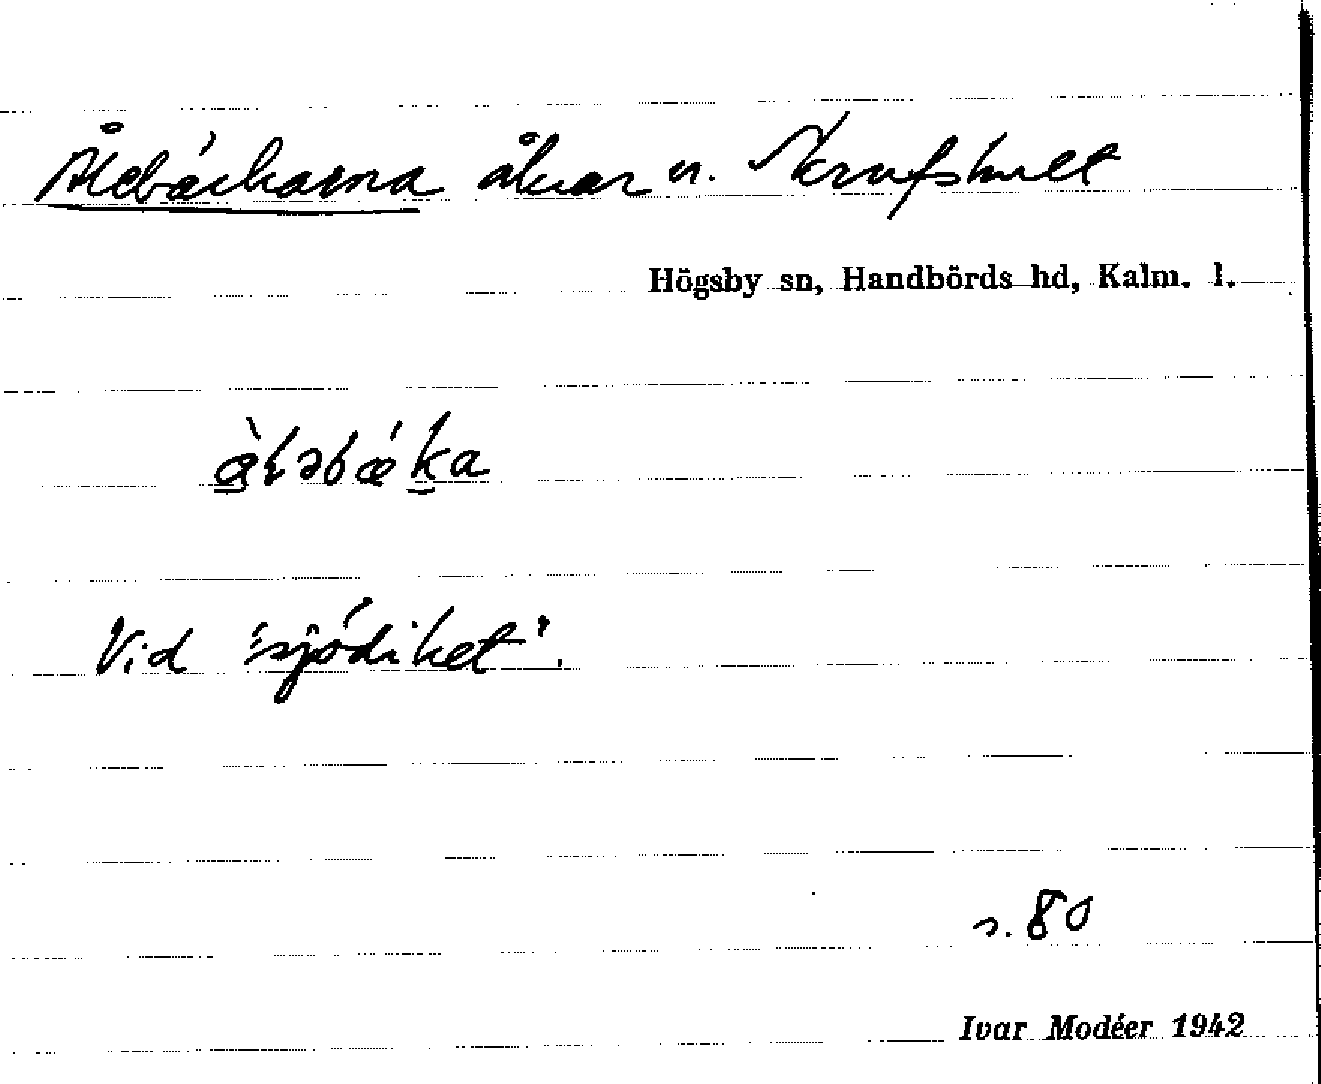 Ålebäckarna åkrar n. Skrufshult
Högsby sn, Handbörds hd, Kalm. l.
Vid "sjödiket".
s. 80
Ivar Modéer 1942